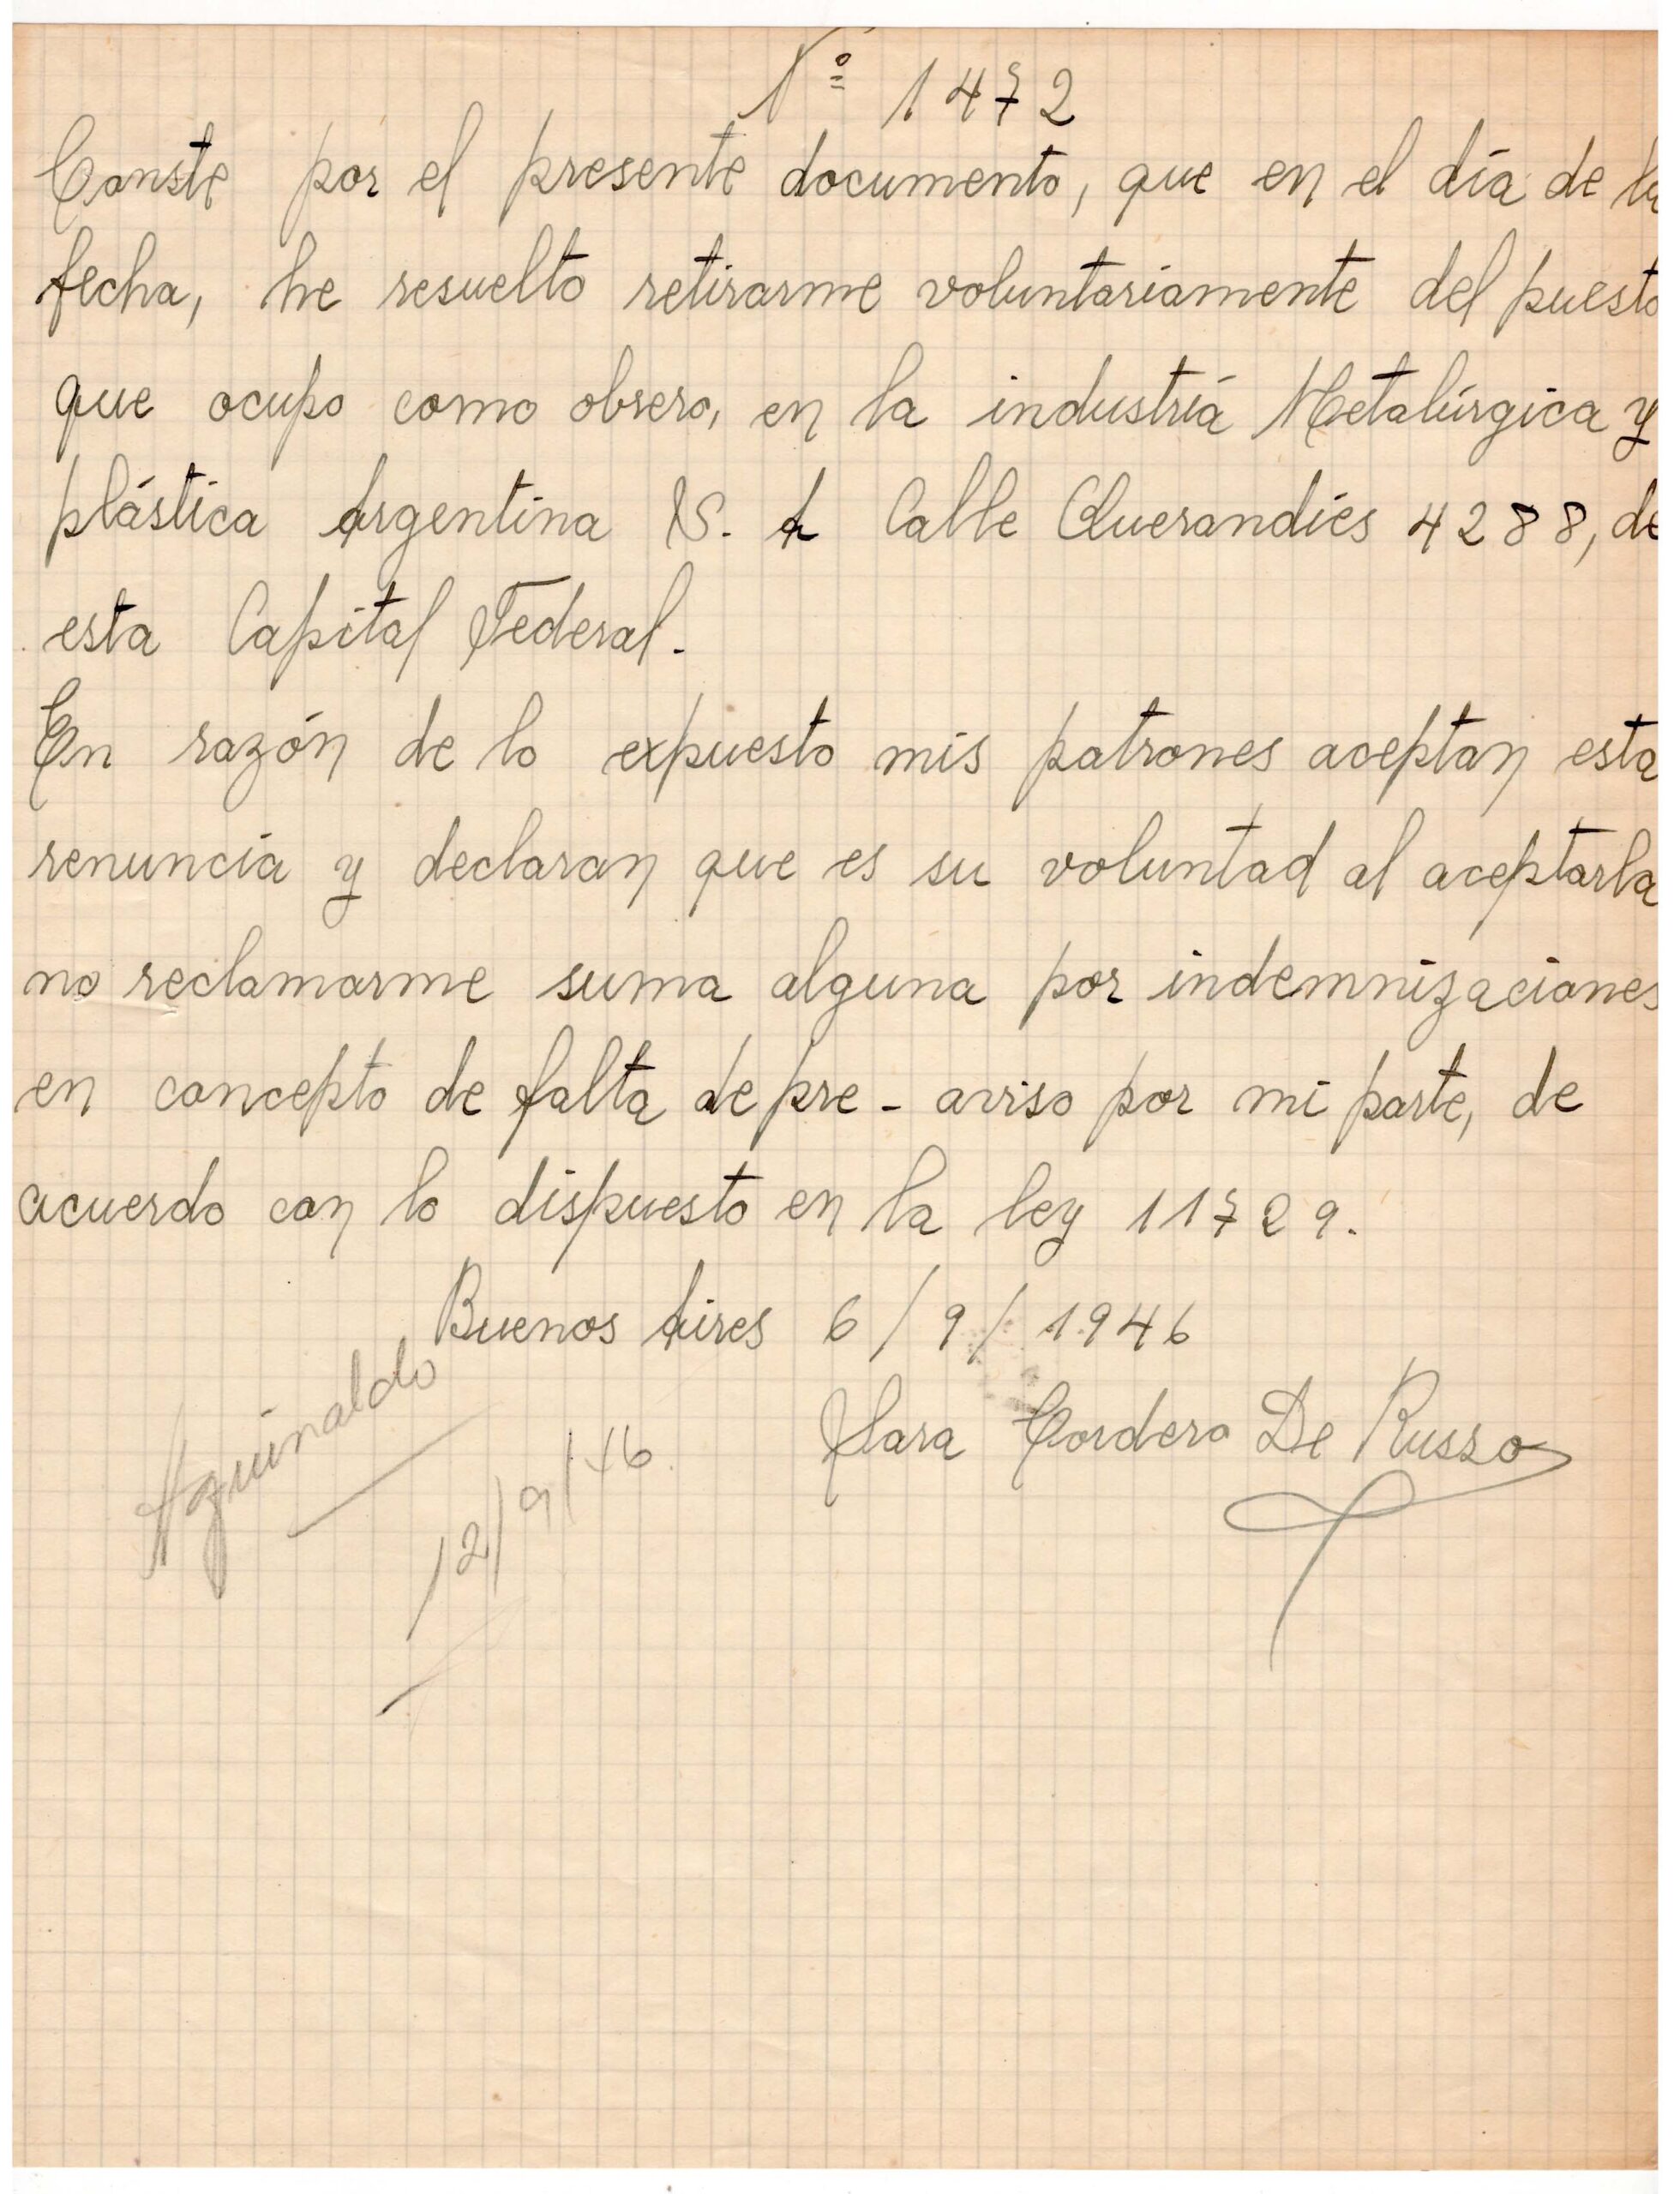 Nº 1472
Conste por el presente documento, que en el día de la
fecha, he resuelto retirarme voluntariamente del puesto
que ocupo como obrero, en la industria Metalúrgica y
plástica Argentina S. A Calle Querandíes 4288, de
esta Capital Federal.
En razón de lo expuesto mis patrones aceptan esta
renuncia y declaran que es su voluntad al aceptarla
no reclamarme suma alguna por indemnizaciones
en concepto de falta de pre-aviso por mi parte, de
acuerdo con lo dispuesto en la ley 11729.
Buenos Aires 6/9/1946
Clara Cordero De Russo
Aguinaldo
12/9/46.